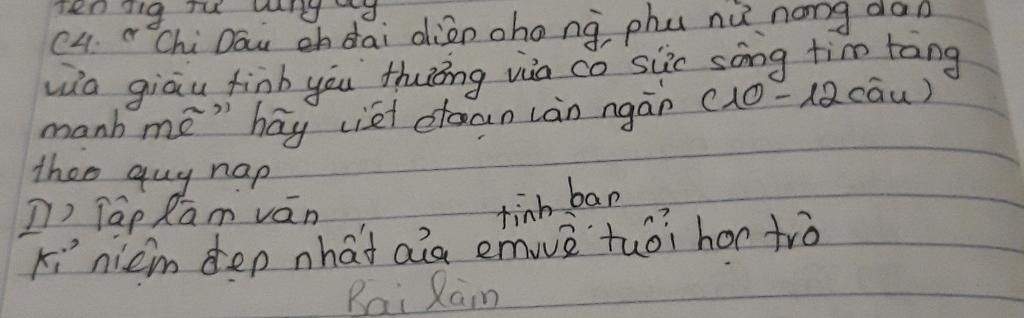 tên
C4. "Chị Dậu đại diện cho ng phụ nữ nông dân
vừa giàu tình yêu thương vừa có sức sống tìm tàng
mạnh mẽ" hãy viết đoạn văn ngắn (10-12 câu)
theo quy nạp
II) Tập làm văn
tình bạn
Kỉ niệm đẹp nhất của em về tuổi học trò
Bài làm